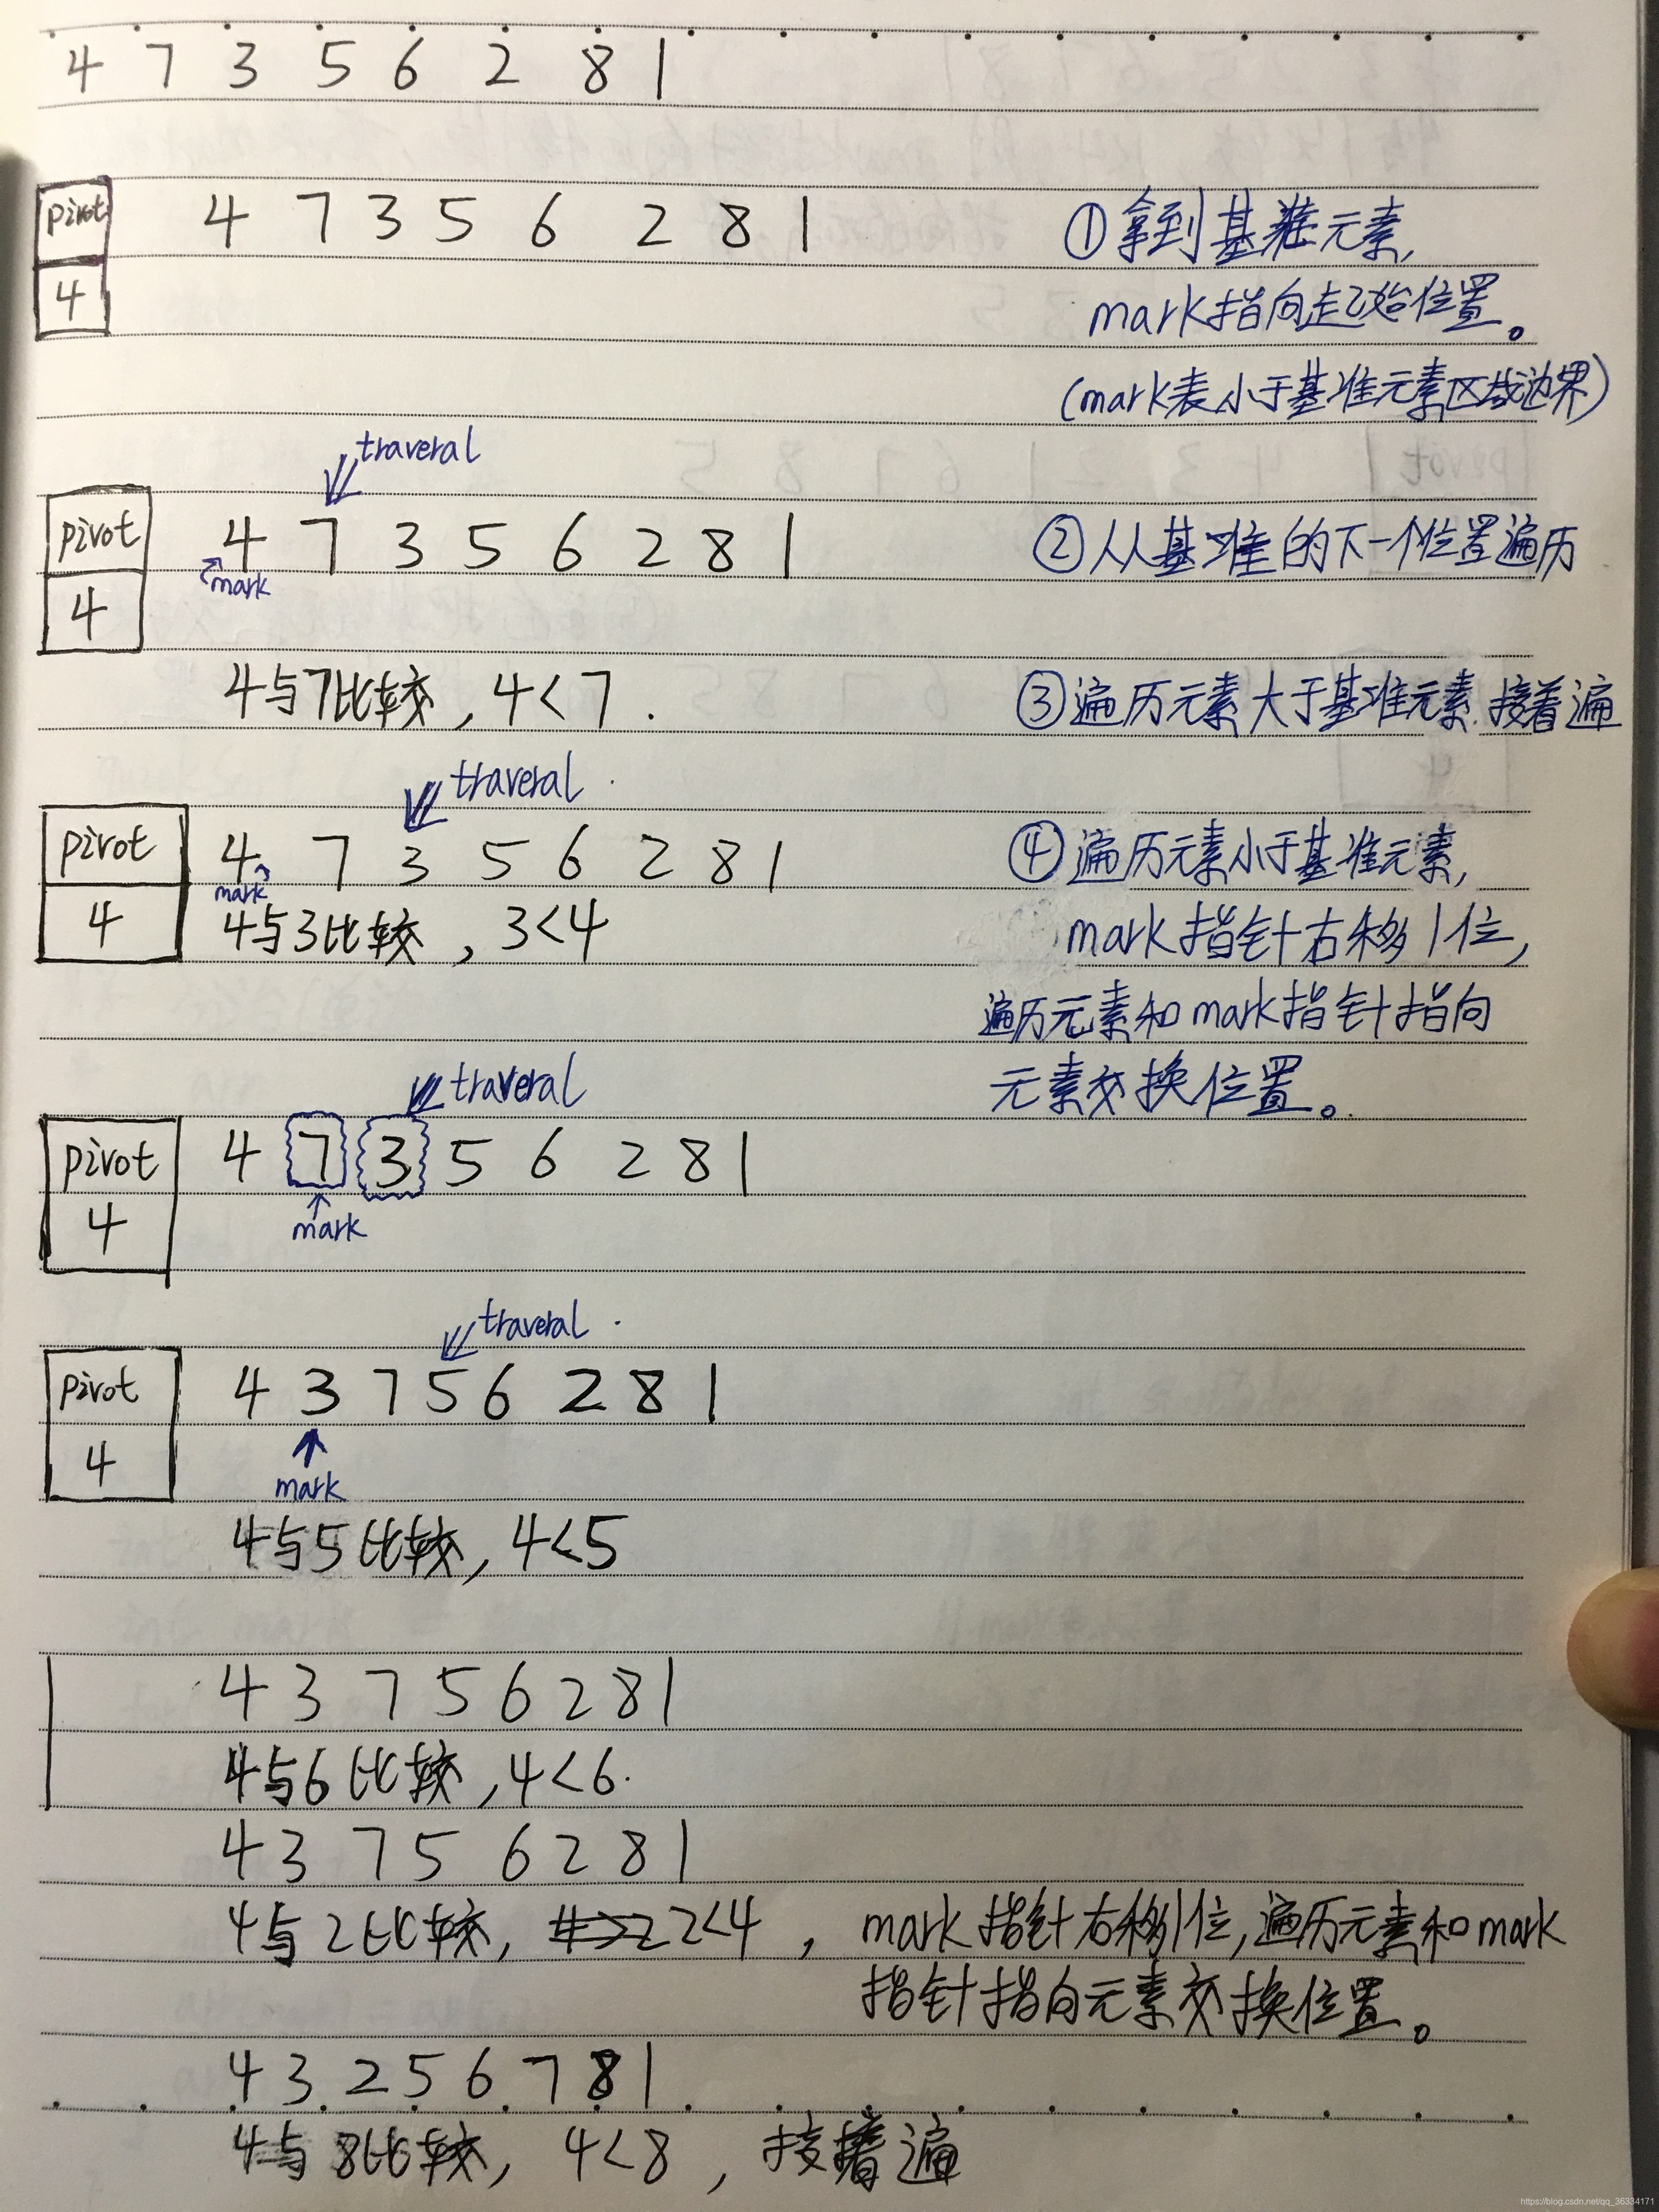 4 7 3 5 6 2 8 1
pivot 4 7 3 5 6 2 8 1 ①拿到基准元素,
4 mark指向起始位置。
(mark表小于基准元素区域边界)
traveral
pivot 4 7 3 5 6 2 8 1 ②从基准的下一个位置遍历
mark
4
4与7比较, 4<7. ③遍历元素大于基准元素.接着遍
traveral
pivot 4 7 3 5 6 2 8 1 ④遍历元素小于基准元素,
mark
4 4与3比较, 3<4 mark指针右移1位,
遍历元素和mark指针指向
traveral 元素交换位置。
pivot 4 7 3 5 6 2 8 1
4 mark
traveral
pivot 4 3 7 5 6 2 8 1
4 mark
4与5比较, 4<5
4 3 7 5 6 2 8 1
4与6比较, 4<6.
4 3 7 5 6 2 8 1
4与2比较, 2<4, mark指针右移1位,遍历元素和mark
指针指向元素交换位置。
4 3 2 5 6 7 8 1
4与8比较, 4<8, 接着遍
https://blog.csdn.net/qq_36334171